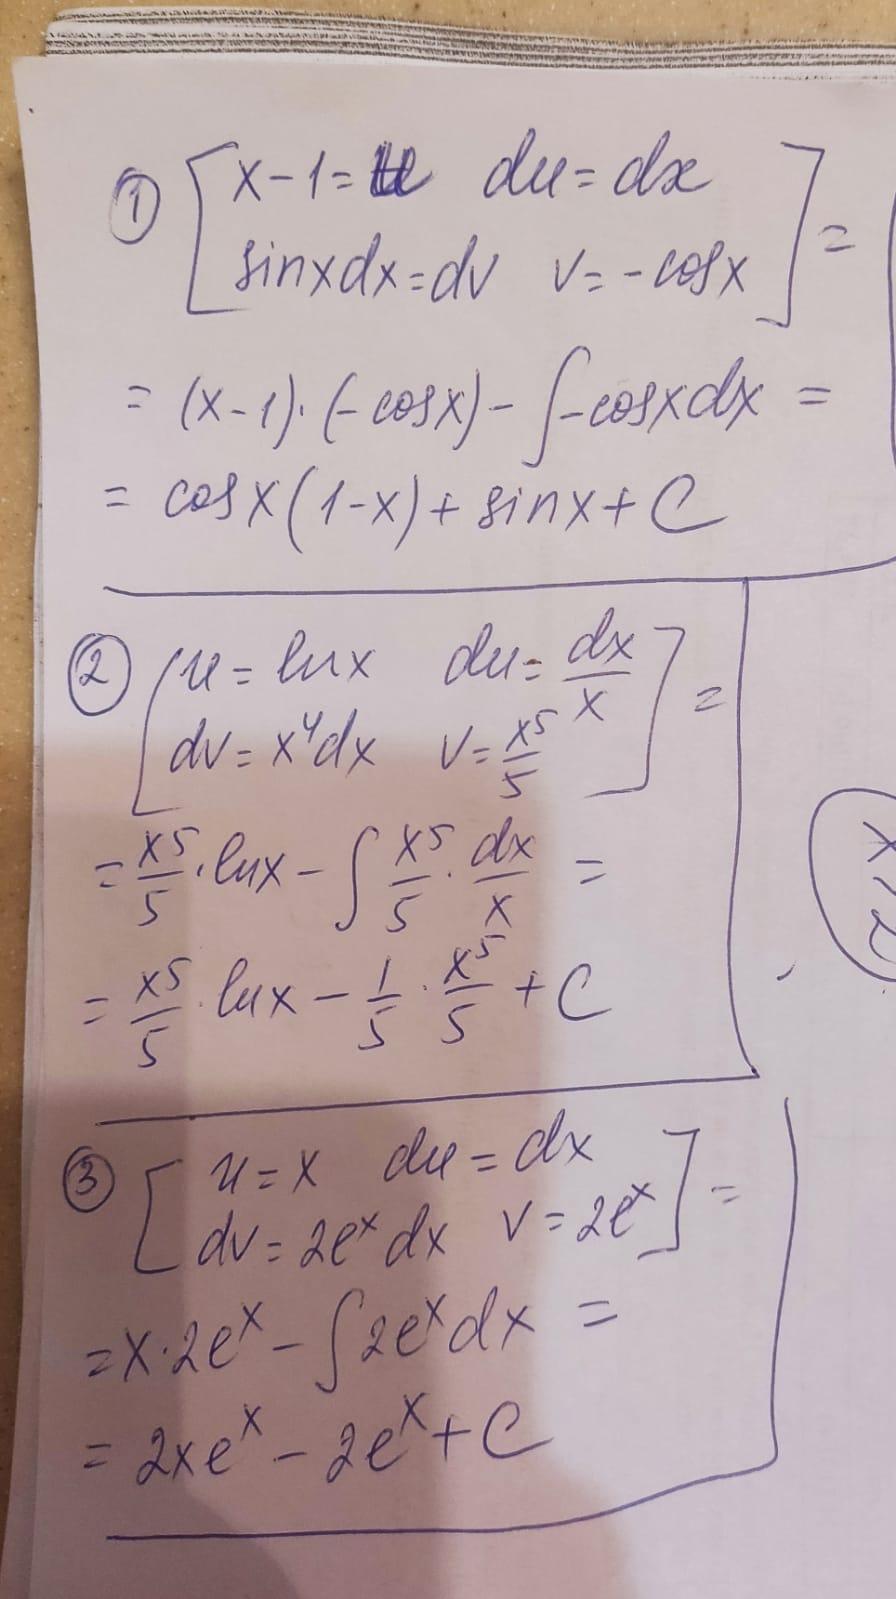 ① [ x-1=u du=dx
sinxdx=dv v=-cosx ] =
= (x-1)·(-cosx)- ∫-cosxdx =
= cosx(1-x)+sinx+C
② [ u=lnx du=dx/x
dv=x⁴dx v=x⁵/5 ] =
= x⁵/5·lnx-∫x⁵/5·dx/x =
= x⁵/5·lnx-1/5·x⁵/5+C
③ [ u=x du=dx
dv=2eˣdx v=2eˣ ] =
=x·2eˣ-∫2eˣdx =
= 2xeˣ-2eˣ+C